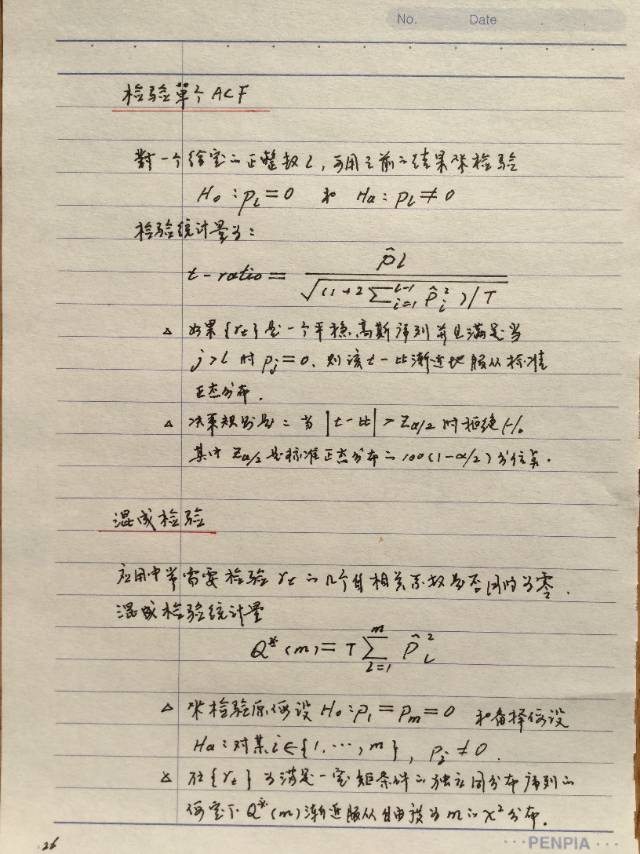 No. Date
检验單个ACF
對一个给定的正整数l,可用之前的结果来检验
H₀:ρ_l=0 和 Ha:ρ_l≠0
检验统计量为:
t-ratio= ρ̂_l / √((1+2∑_{i=1}^{l-1} ρ̂_i²)/T)
△ 如果{r_t}是一个平稳高斯序列并且满足当
j>l 时 ρ_j=0,则该t-比渐近地服从标准
正态分布.
△ 决策规则是:当|t-比|>Z_{α/2}时拒绝H₀
其中Z_{α/2}是标准正态分布的100(1-α/2)分位点.
混成检验
应用中常需要检验r_t的几个自相关系数是否同时为零.
混成检验统计量
Q*(m)=T∑_{l=1}^{m} ρ̂_l²
△ 来检验原假设H₀:ρ₁=ρ_m=0 和备择假设
Ha:对某i∈{1,…,m},ρ_i≠0.
△ 在{r_t}为满足一定矩条件的独立同分布序列的
假定下Q*(m)渐近服从自由度为m的χ²分布.
26
···PENPIA···